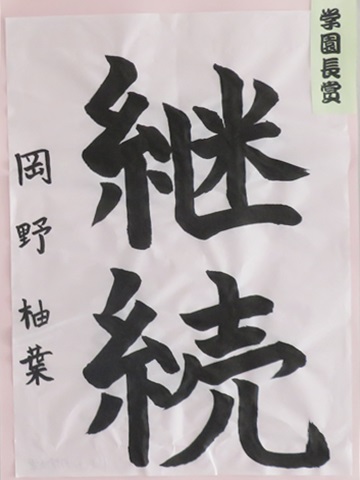 学園長賞
継続
岡野柚葉